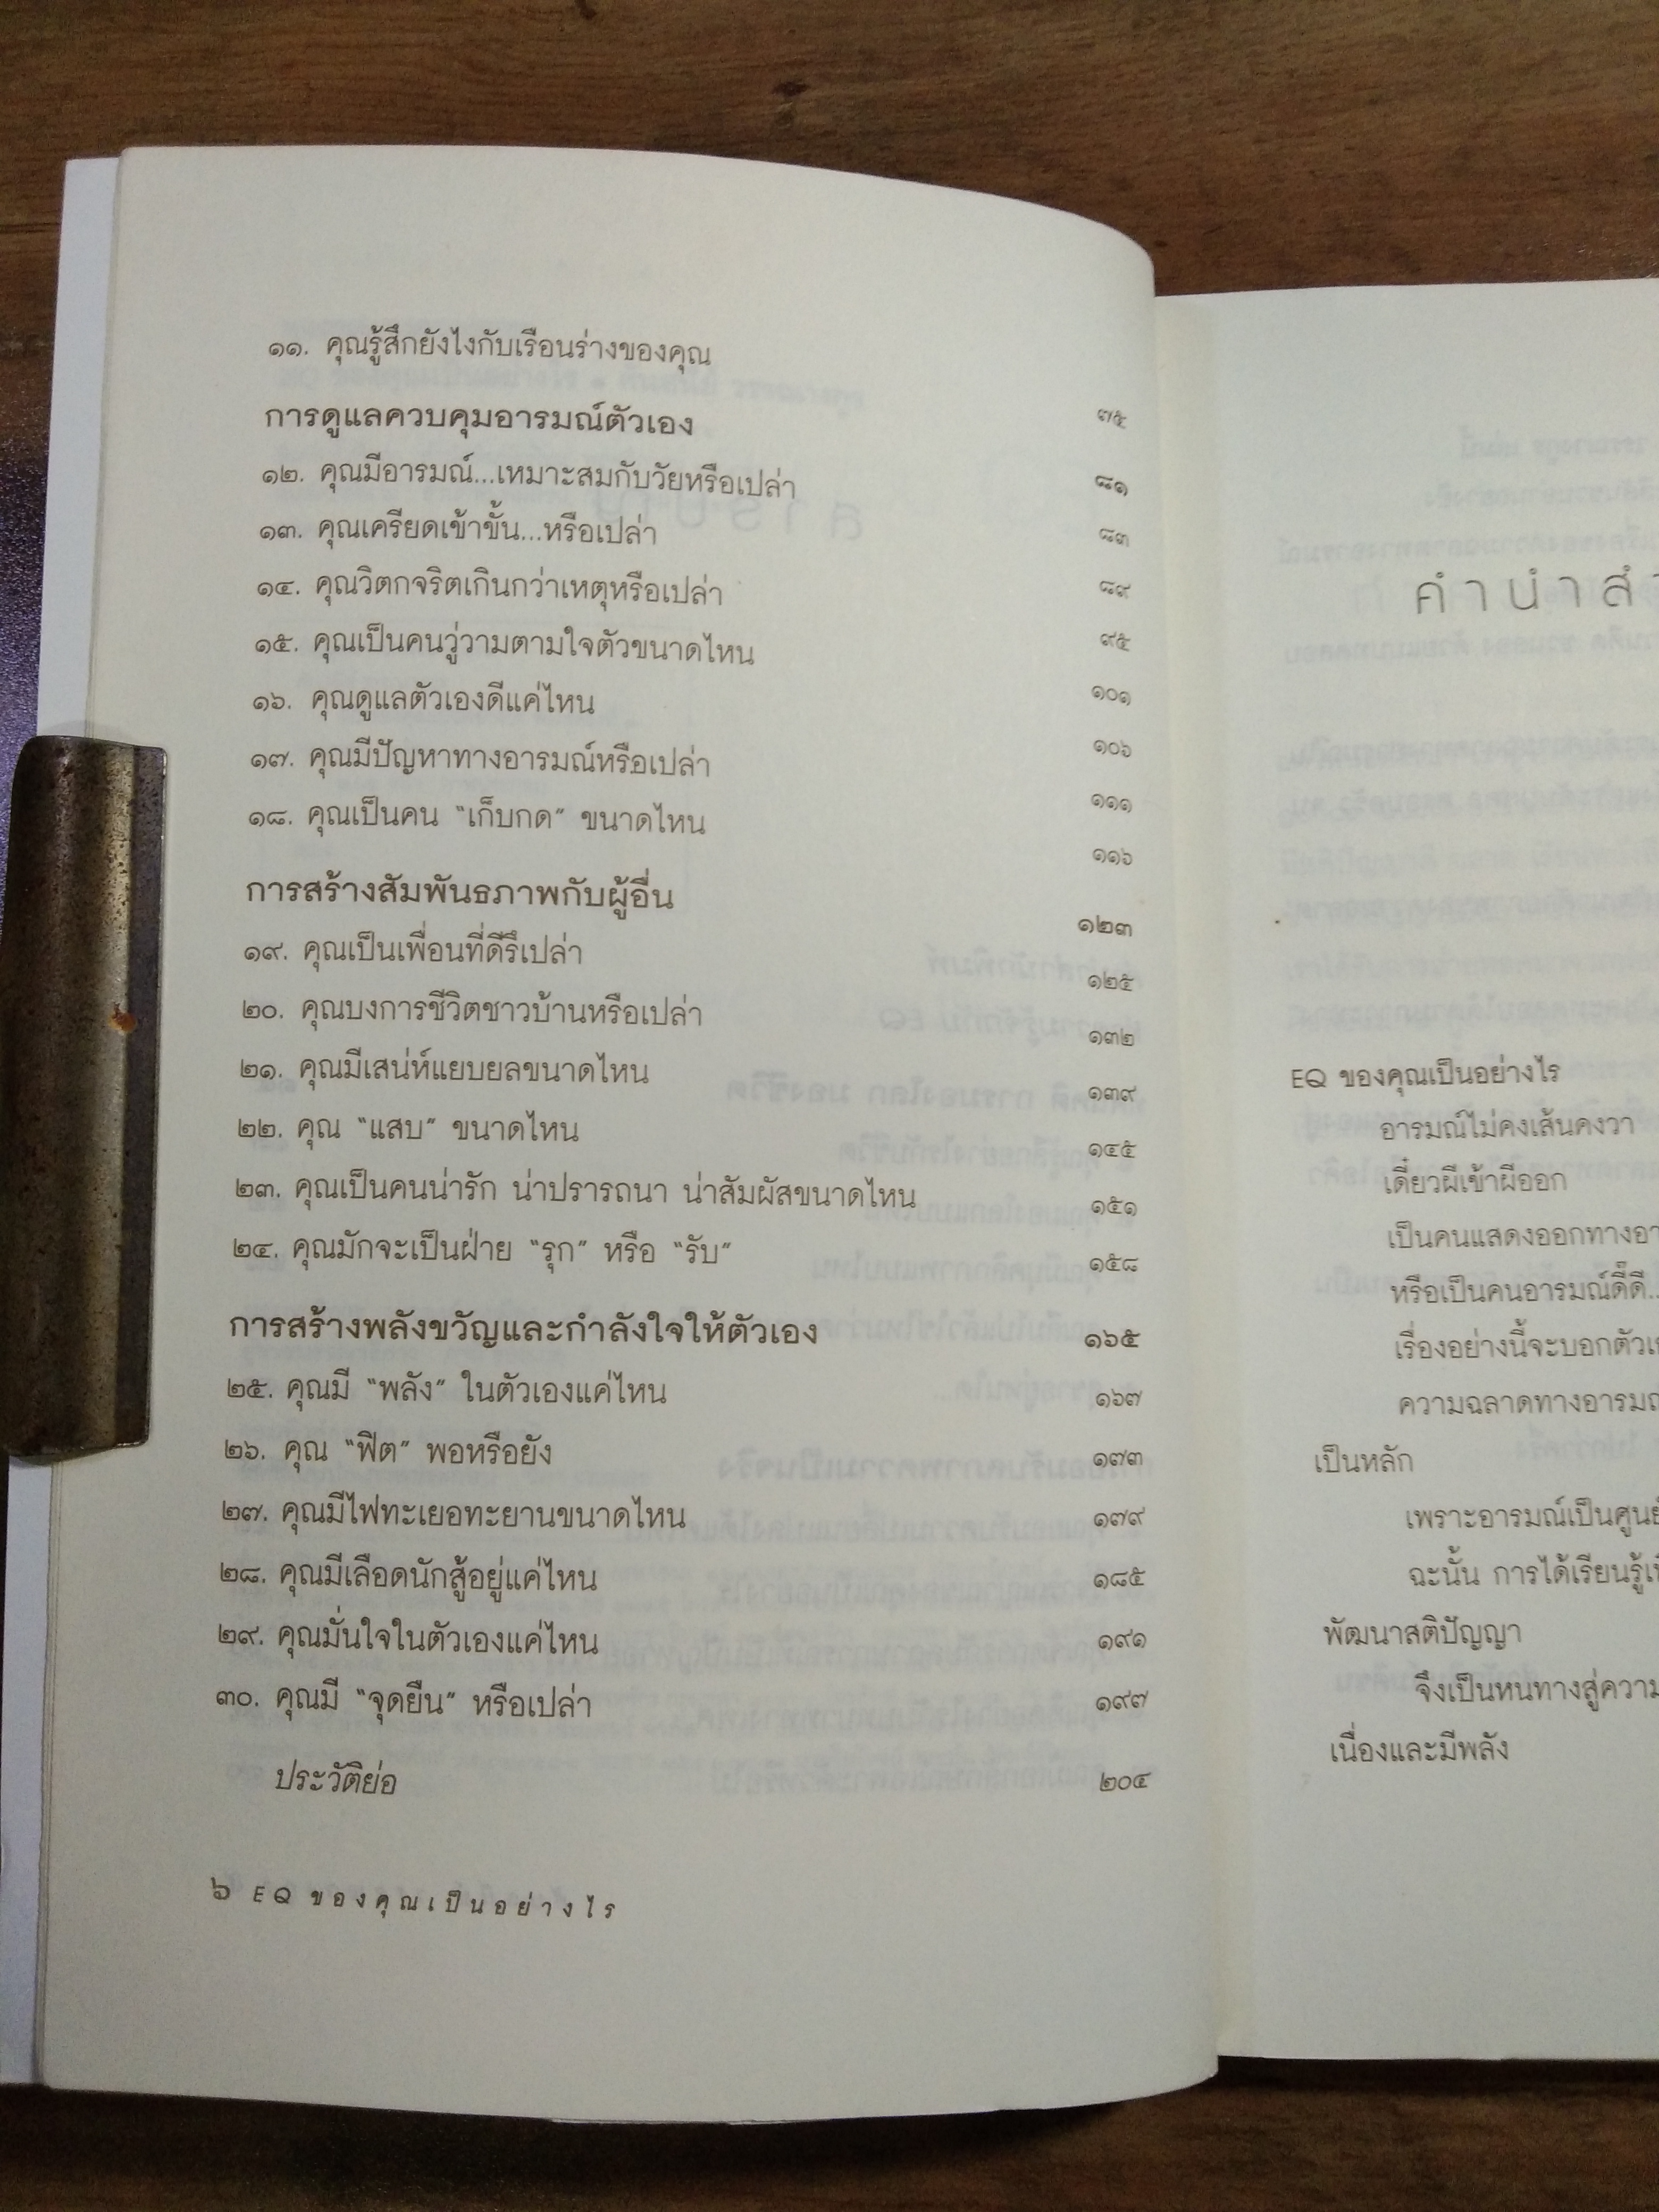 ๑๑. คุณรู้สึกยังไงกับเรือนร่างของคุณ ๗๕
การดูแลควบคุมอารมณ์ตัวเอง ๘๑
๑๒. คุณมีอารมณ์...เหมาะสมกับวัยหรือเปล่า ๘๓
๑๓. คุณเครียดเข้าขั้น...หรือเปล่า ๘๙
๑๔. คุณวิตกจริตเกินกว่าเหตุหรือเปล่า ๙๕
๑๕. คุณเป็นคนวู่วามตามใจตัวขนาดไหน ๑๐๑
๑๖. คุณดูแลตัวเองดีแค่ไหน ๑๐๖
๑๗. คุณมีปัญหาทางอารมณ์หรือเปล่า ๑๑๑
๑๘. คุณเป็นคน "เก็บกด" ขนาดไหน ๑๑๖
การสร้างสัมพันธภาพกับผู้อื่น ๑๒๓
๑๙. คุณเป็นเพื่อนที่ดีรึเปล่า ๑๒๕
๒๐. คุณบงการชีวิตชาวบ้านหรือเปล่า ๑๓๒
๒๑. คุณมีเสน่ห์แยบยลขนาดไหน ๑๓๙
๒๒. คุณ "แสบ" ขนาดไหน ๑๔๕
๒๓. คุณเป็นคนน่ารัก น่าปรารถนา น่าสัมผัสขนาดไหน ๑๕๑
๒๔. คุณมักจะเป็นฝ่าย "รุก" หรือ "รับ" ๑๕๘
การสร้างพลังขวัญและกำลังใจให้ตัวเอง ๑๖๕
๒๕. คุณมี "พลัง" ในตัวเองแค่ไหน ๑๖๗
๒๖. คุณ "ฟิต" พอหรือยัง ๑๗๓
๒๗. คุณมีไฟทะเยอทะยานขนาดไหน ๑๗๙
๒๘. คุณมีเลือดนักสู้อยู่แค่ไหน ๑๘๕
๒๙. คุณมั่นใจในตัวเองแค่ไหน ๑๙๑
๓๐. คุณมี "จุดยืน" หรือเปล่า ๑๙๗
ประวัติย่อ ๒๐๔
๖ EQ ของคุณเป็นอย่างไร
คำนำ
EQ ของคุณเป็นอย่างไร
อารมณ์ไม่คงเส้นคงวา
เดี๋ยวผีเข้าผีออก
เป็นคนแสดงออกทาง
หรือเป็นคนอารมณ์ดี๊ดี..
เรื่องอย่างนี้จะบอก
ความฉลาดทาง
เป็นหลัก
เพราะอารมณ์เป็น
ฉะนั้น การได้เรียนรู้
พัฒนาสติปัญญา
จึงเป็นหนทางสู่
เนื่องและมีพลัง